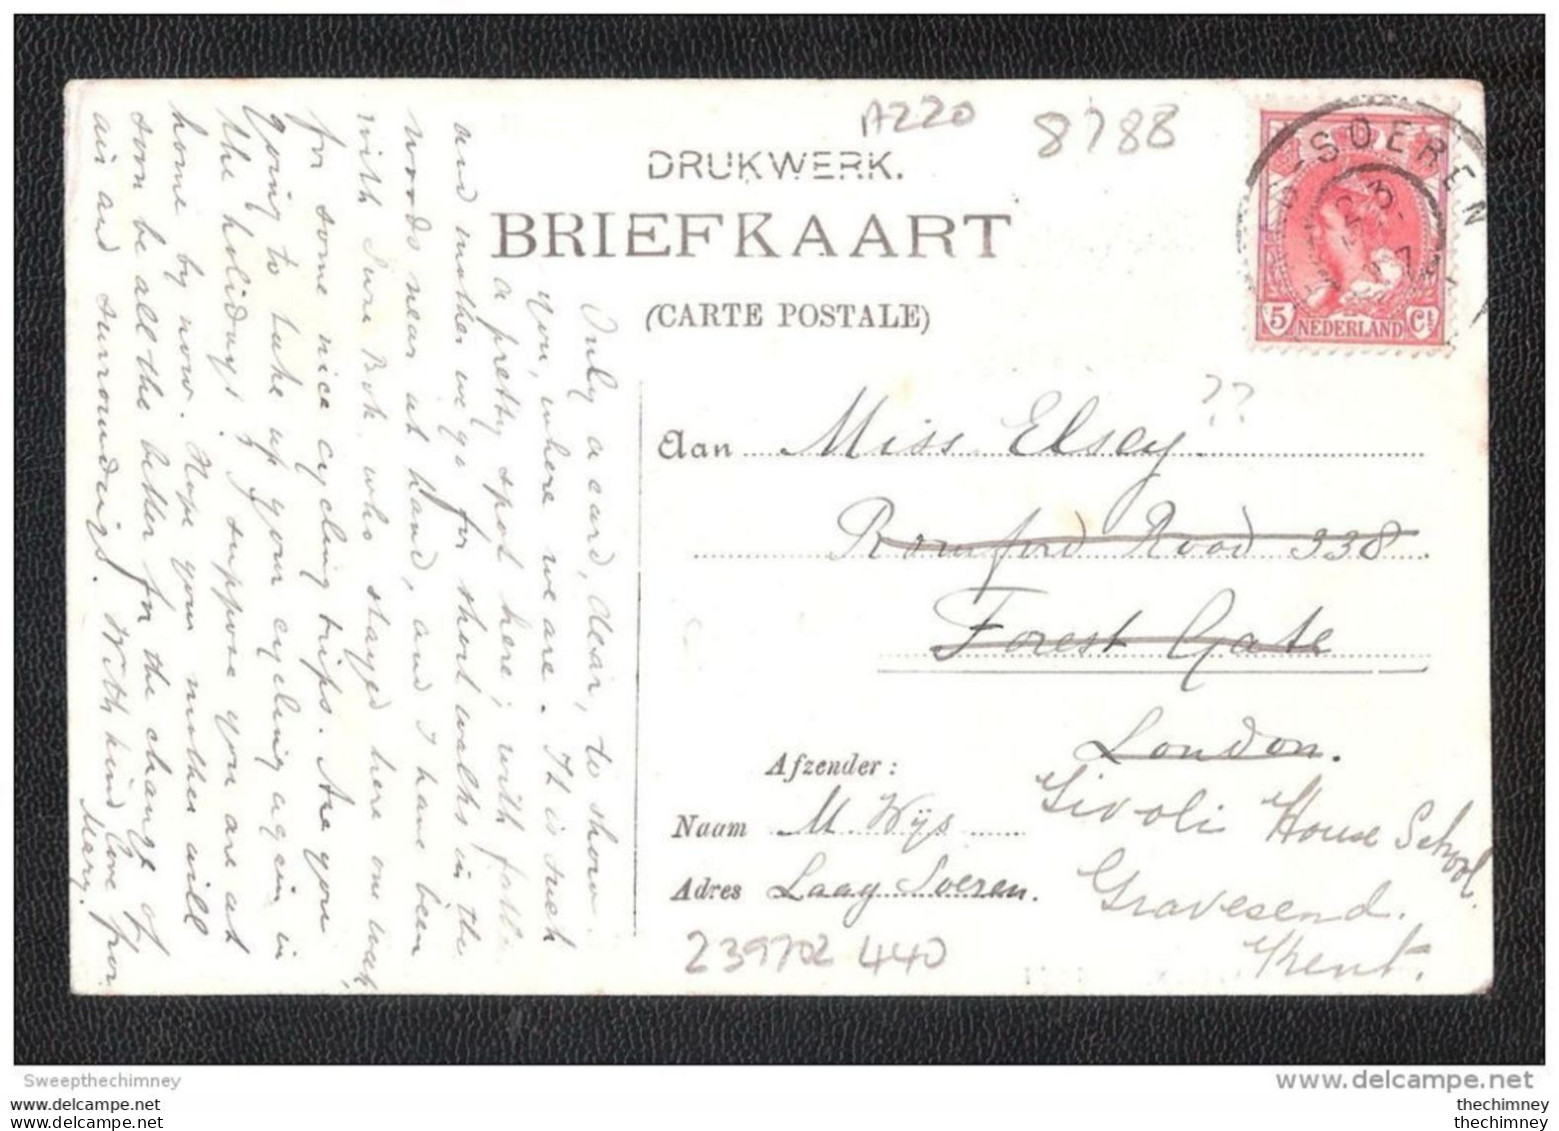 A220
8788
DRUKWERK.
BRIEFKAART
(CARTE POSTALE)
L-SOEREN
23
5 NEDERLAND Ct
Only a card, dear, to show
you, where we are. It is such
a pretty spot here; with
and mother we go for short walks in the
woods near at hand, and I have been
with Bob who stayed here one week,
for some nice cycling trips. Are you
going to take up your cycling again in
the holidays? I suppose you are at
home by now. Hope your mother will
soon be all the better for the change of
air and surroundings. With kind love from
Mary.
Aan Miss Elsey ??
Romford Road 338
Forest Gate
London.
Tivoli House School.
Gravesend.
Kent.
Afzender:
Naam M Wijs
Adres Laag Soeren.
239702 440
Sweepthechimney
www.delcampe.net
thechimney
thechimney
thechimney
thechimney